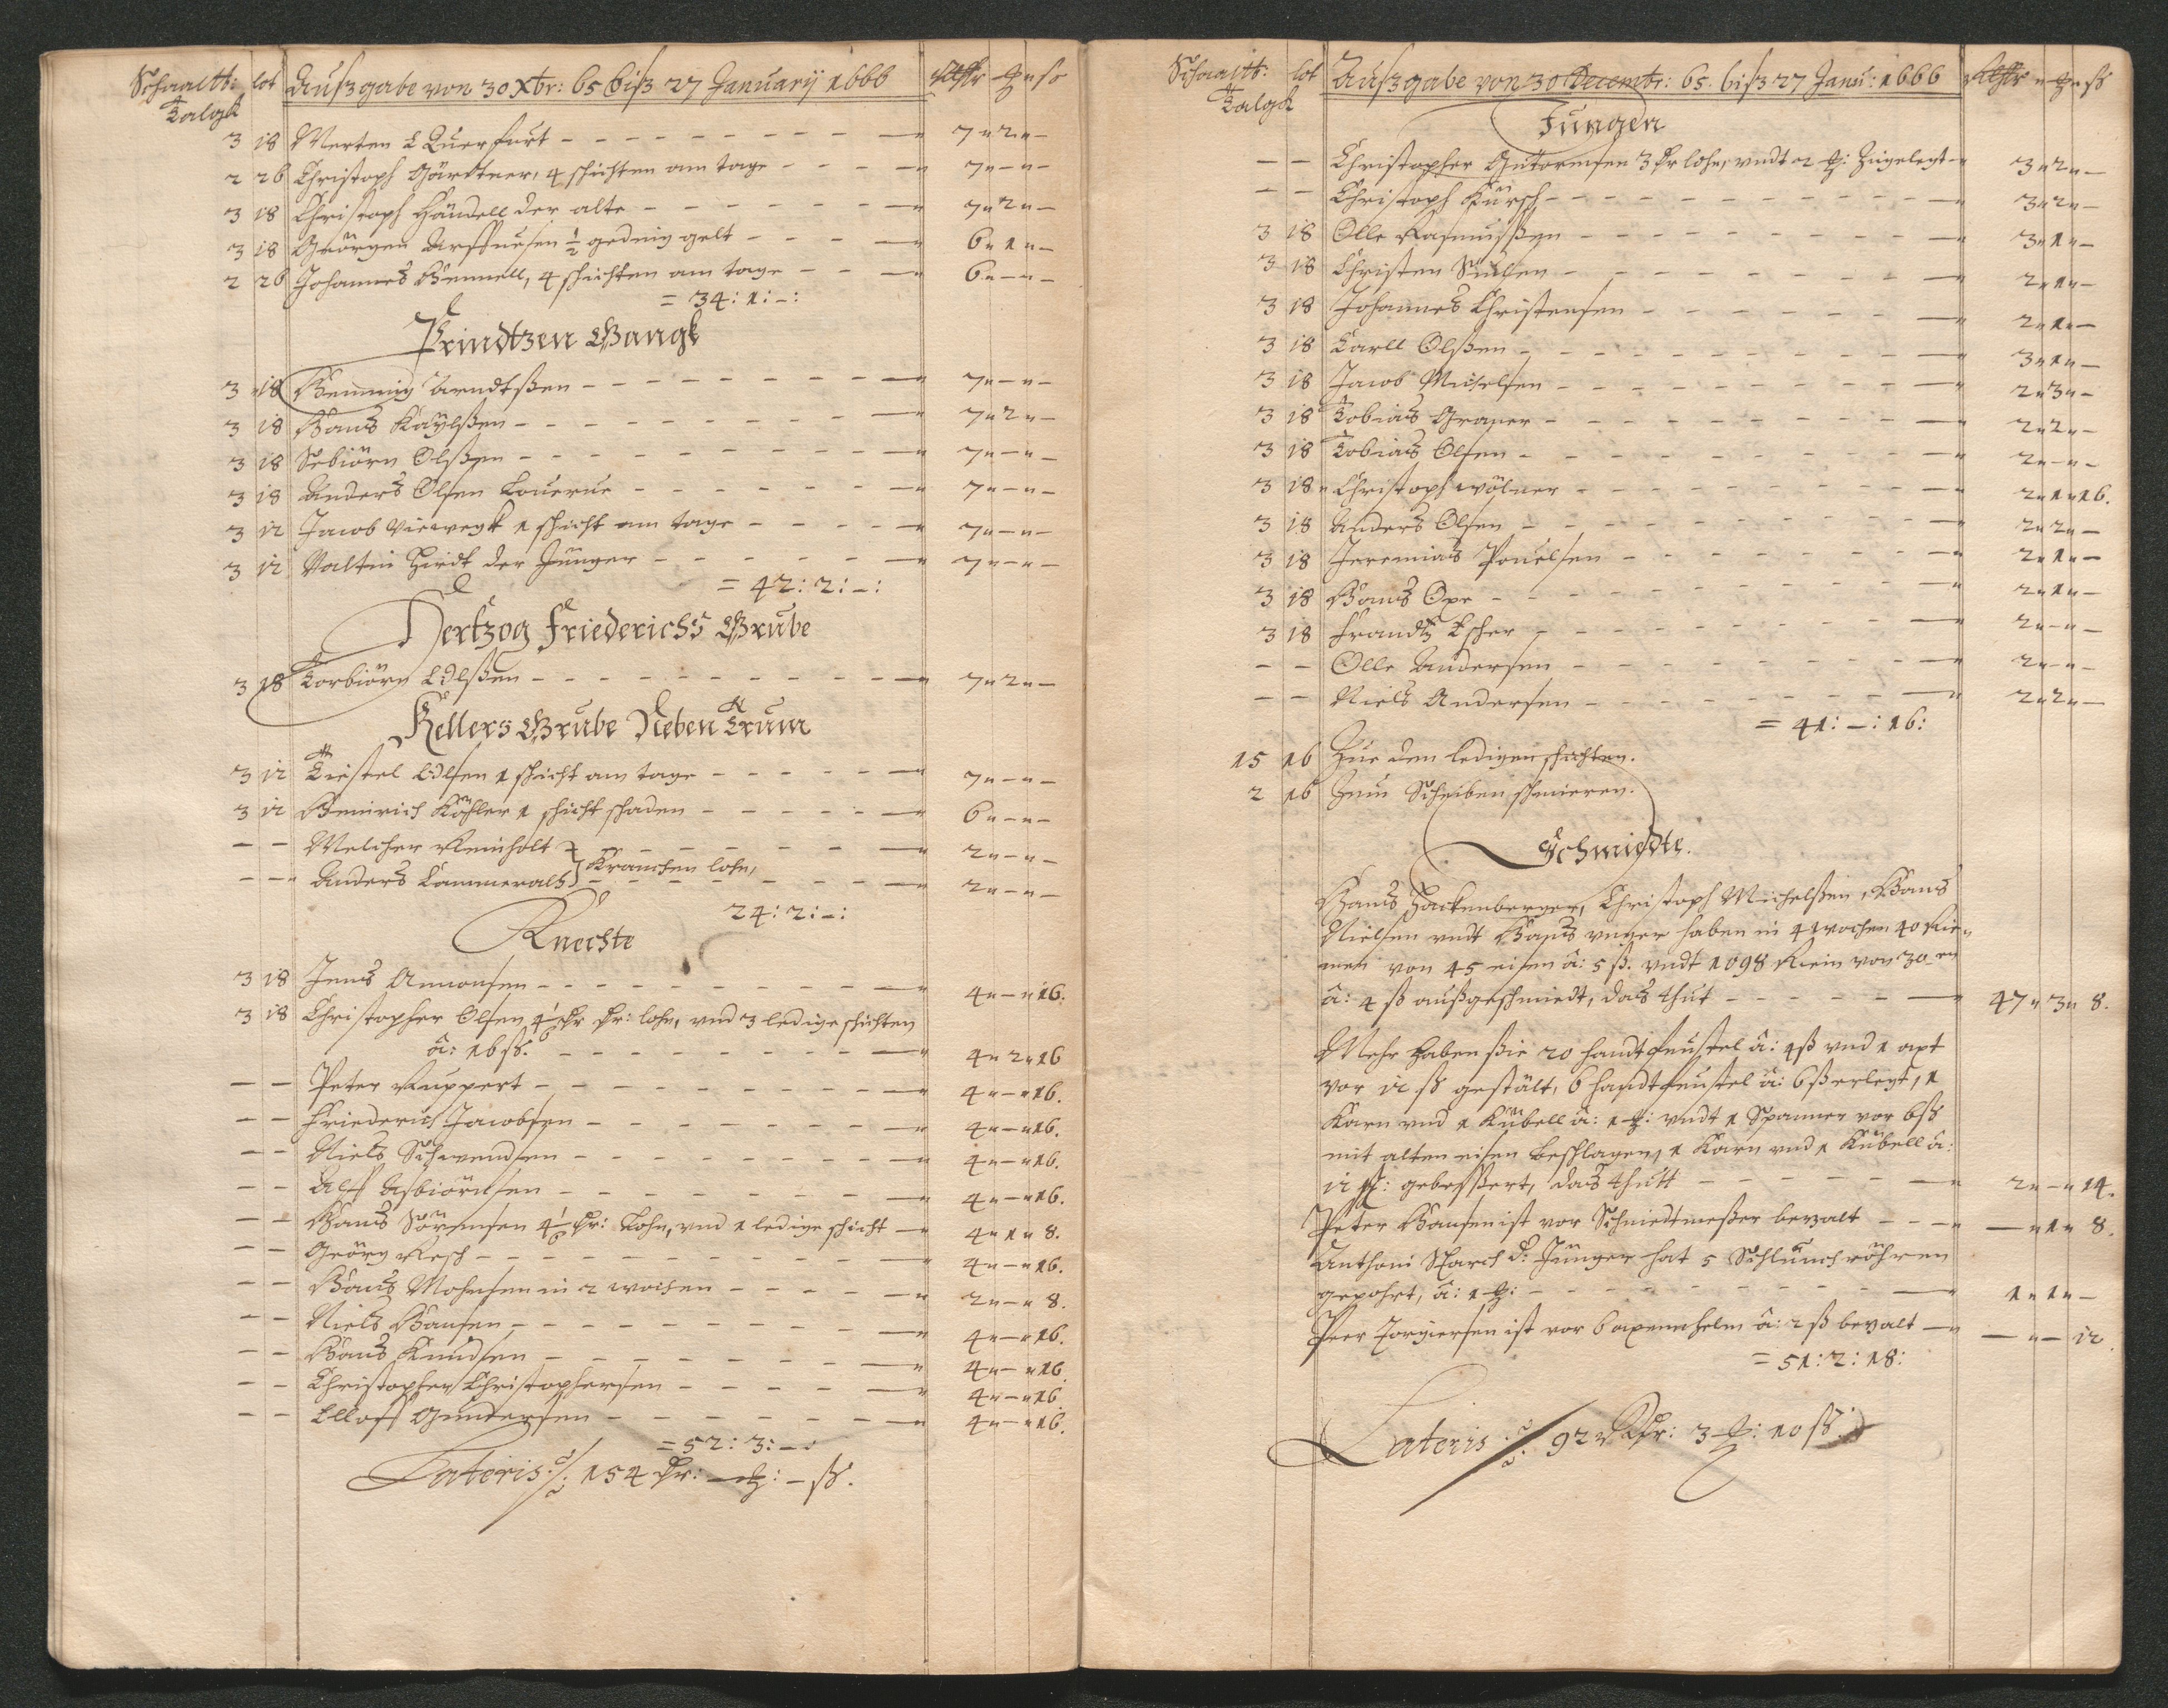 Schaaltt: lot Außgabe von 30 Xbr: 65 biß 27 Januarij 1666
Talgk
3 18 Merten Querfurt - - - 7 " 2 " -
2 26 Christoph Gärdtner, 4 schichten am tage - - - 7 " - " -
3 18 Christoph Händell der alte - - - 7 " 2 " -
3 18 Geörgen ½ geding gelt - - - 6 " 1 " -
2 26 Johannes Hennell, 4 schichten am tage - - - 6 " - " -
= 34 : 1 : - :
Prindtzen Gangk
3 18 Henning Arndtßen - - - 7 " - " -
3 18 Hans Kaylßen - - - 7 " 2 " -
3 18 Sebiörn Olßen - - - 7 " - " -
3 18 Anders Olsen Louerue - - - 7 " - " -
3 12 Jacob Viewegk 1 schicht am tage - - - 7 " - " -
3 12 Valtin Hirdt der Jünger - - - 7 " - " -
= 42 : 2 : - :
Hertzog Friederichs Grube
3 18 Torbiörn Olßen - - - 7 " 2 " -
Kellers Grube Neben Trum
3 12 Kiestel Olsen 1 schicht am tage - - - 7 " - " -
3 12 Heinrich Köhler 1 schicht schaden - - - 6 " - " -
- - Melcher Reinholt - - - 2 " - " -
- - Anders Cammeralh } Krancken lohn, - - - 2 " - " -
24 : 2 : - :
Knechte
3 18 Jens Amonsen - - - 4 " - " 16.
3 18 Christopher Olsen 4 1/6 Rr: lohn, vnd 3 ledige schichten
â: 16 ß. - - - 4 " 2 " 16
- - Peter Ruppert - - - 4 " - " 16.
- - Friederich Jacobsen - - - 4 " - " 16.
- - Niels Schwendsen - - - 4 " - " 16.
- - Alff Asbiörnsen - - - 4 " - " 16.
- - Hans Sörensen 4 1/6 Rr: Lohn, vnd 1 ledige schicht - 4 " 1 " 8.
- - Geörg Resch - - - 4 " - " 16.
- - Hans Mohnsen in 2 wochen - - - 2 " - " 8.
- - Niels Hansen - - - 4 " - " 16.
- - Hans Knudsen - - - 4 " - " 16.
- - Christopher Christophersen - - - 4 " - " 16.
- - Elloff Gundersen - - - 4 " - " 16.
= 52 : 3 : - :
Lateris ./. 154 Rr: - : - ß.
Schaaltt: lot Außgabe von 30 Decembr: 65. biß 27 Janu: 1666
Talgk
Jungen
- - Christopher Gutormsen 3 Rr lohn, vndt 2 : Zugelegt - 3 " 2 " -
- - Christoph Kürsch - - - 3 " 2 " -
3 18 Olle Rasmußen - - - 3 " 1 " -
3 18 Christen - - - 2 " 1 " -
3 18 Johannes Christensen - - - 2 " 1 " -
3 18 Carll Olßen - - - 3 " 1 " -
3 18 Jacob Michelsen - - - 2 " 3 " -
3 18 Tobias Graner - - - 2 " 2 " -
3 18 Tobias Olsen - - - 2 " - " -
3 18 Christoph wölner - - - 2 " 1 " 16.
3 18 Anders Olsen - - - 2 " 2 " -
3 18 Jeremias Pouelsen - - - 2 " 1 " -
3 18 Hans Oxe - - - 2 " 1 " -
3 18 Frandtz Escher - - - 2 " - " -
- - Olle Andersen - - - 2 " - " -
- - Niels Andersen - - - 2 " 2 " -
= 41 : - : 16 :
15 16 Zue den ledigen schichten.
2 16 Zum Scheiben schmieren.
Schmidte.
Hans Hackenberger, Christoph Michelßen, Hans
Nielsen vndt Hans vnger haben in 4 wochen 40 Rie-
men von 45 eisen â: 5 ß. vndt 1098 Klein von 30 en
â: 4 ß außgeschmiedt, das thut - - - 47 " 3 " 8.
Mehr haben ßie 20 handtfeustel â: 4 ß vnd 1 axt
vor 12 ß gestält, 6 handtfeustel â: 6 ß erlegt, 1
Karn vnd 1 Kübell â: 1 : vndt 1 Spanner vor 6 ß
mit alten eisen beschlagen, 1 Karn vnd 1 Kübell â:
12 ß: gebeßert, das thutt - - - 2 " - " 14.
Peter Hansen ist vor Schniedtmeßer bezalt - - - " 1 " 8.
Anthoni Starch d. Jünger hat 5 Schlunchröhren
gepohrt, â: 1 : - - - 1 " 1 " -
Peer Torgiersen ist vor 6 axenhelm â: 2 ß bezalt - - " - 12
= 51 : 2 : 18 :
Lateris ./. 92 Rr: 3 : 10 ß.